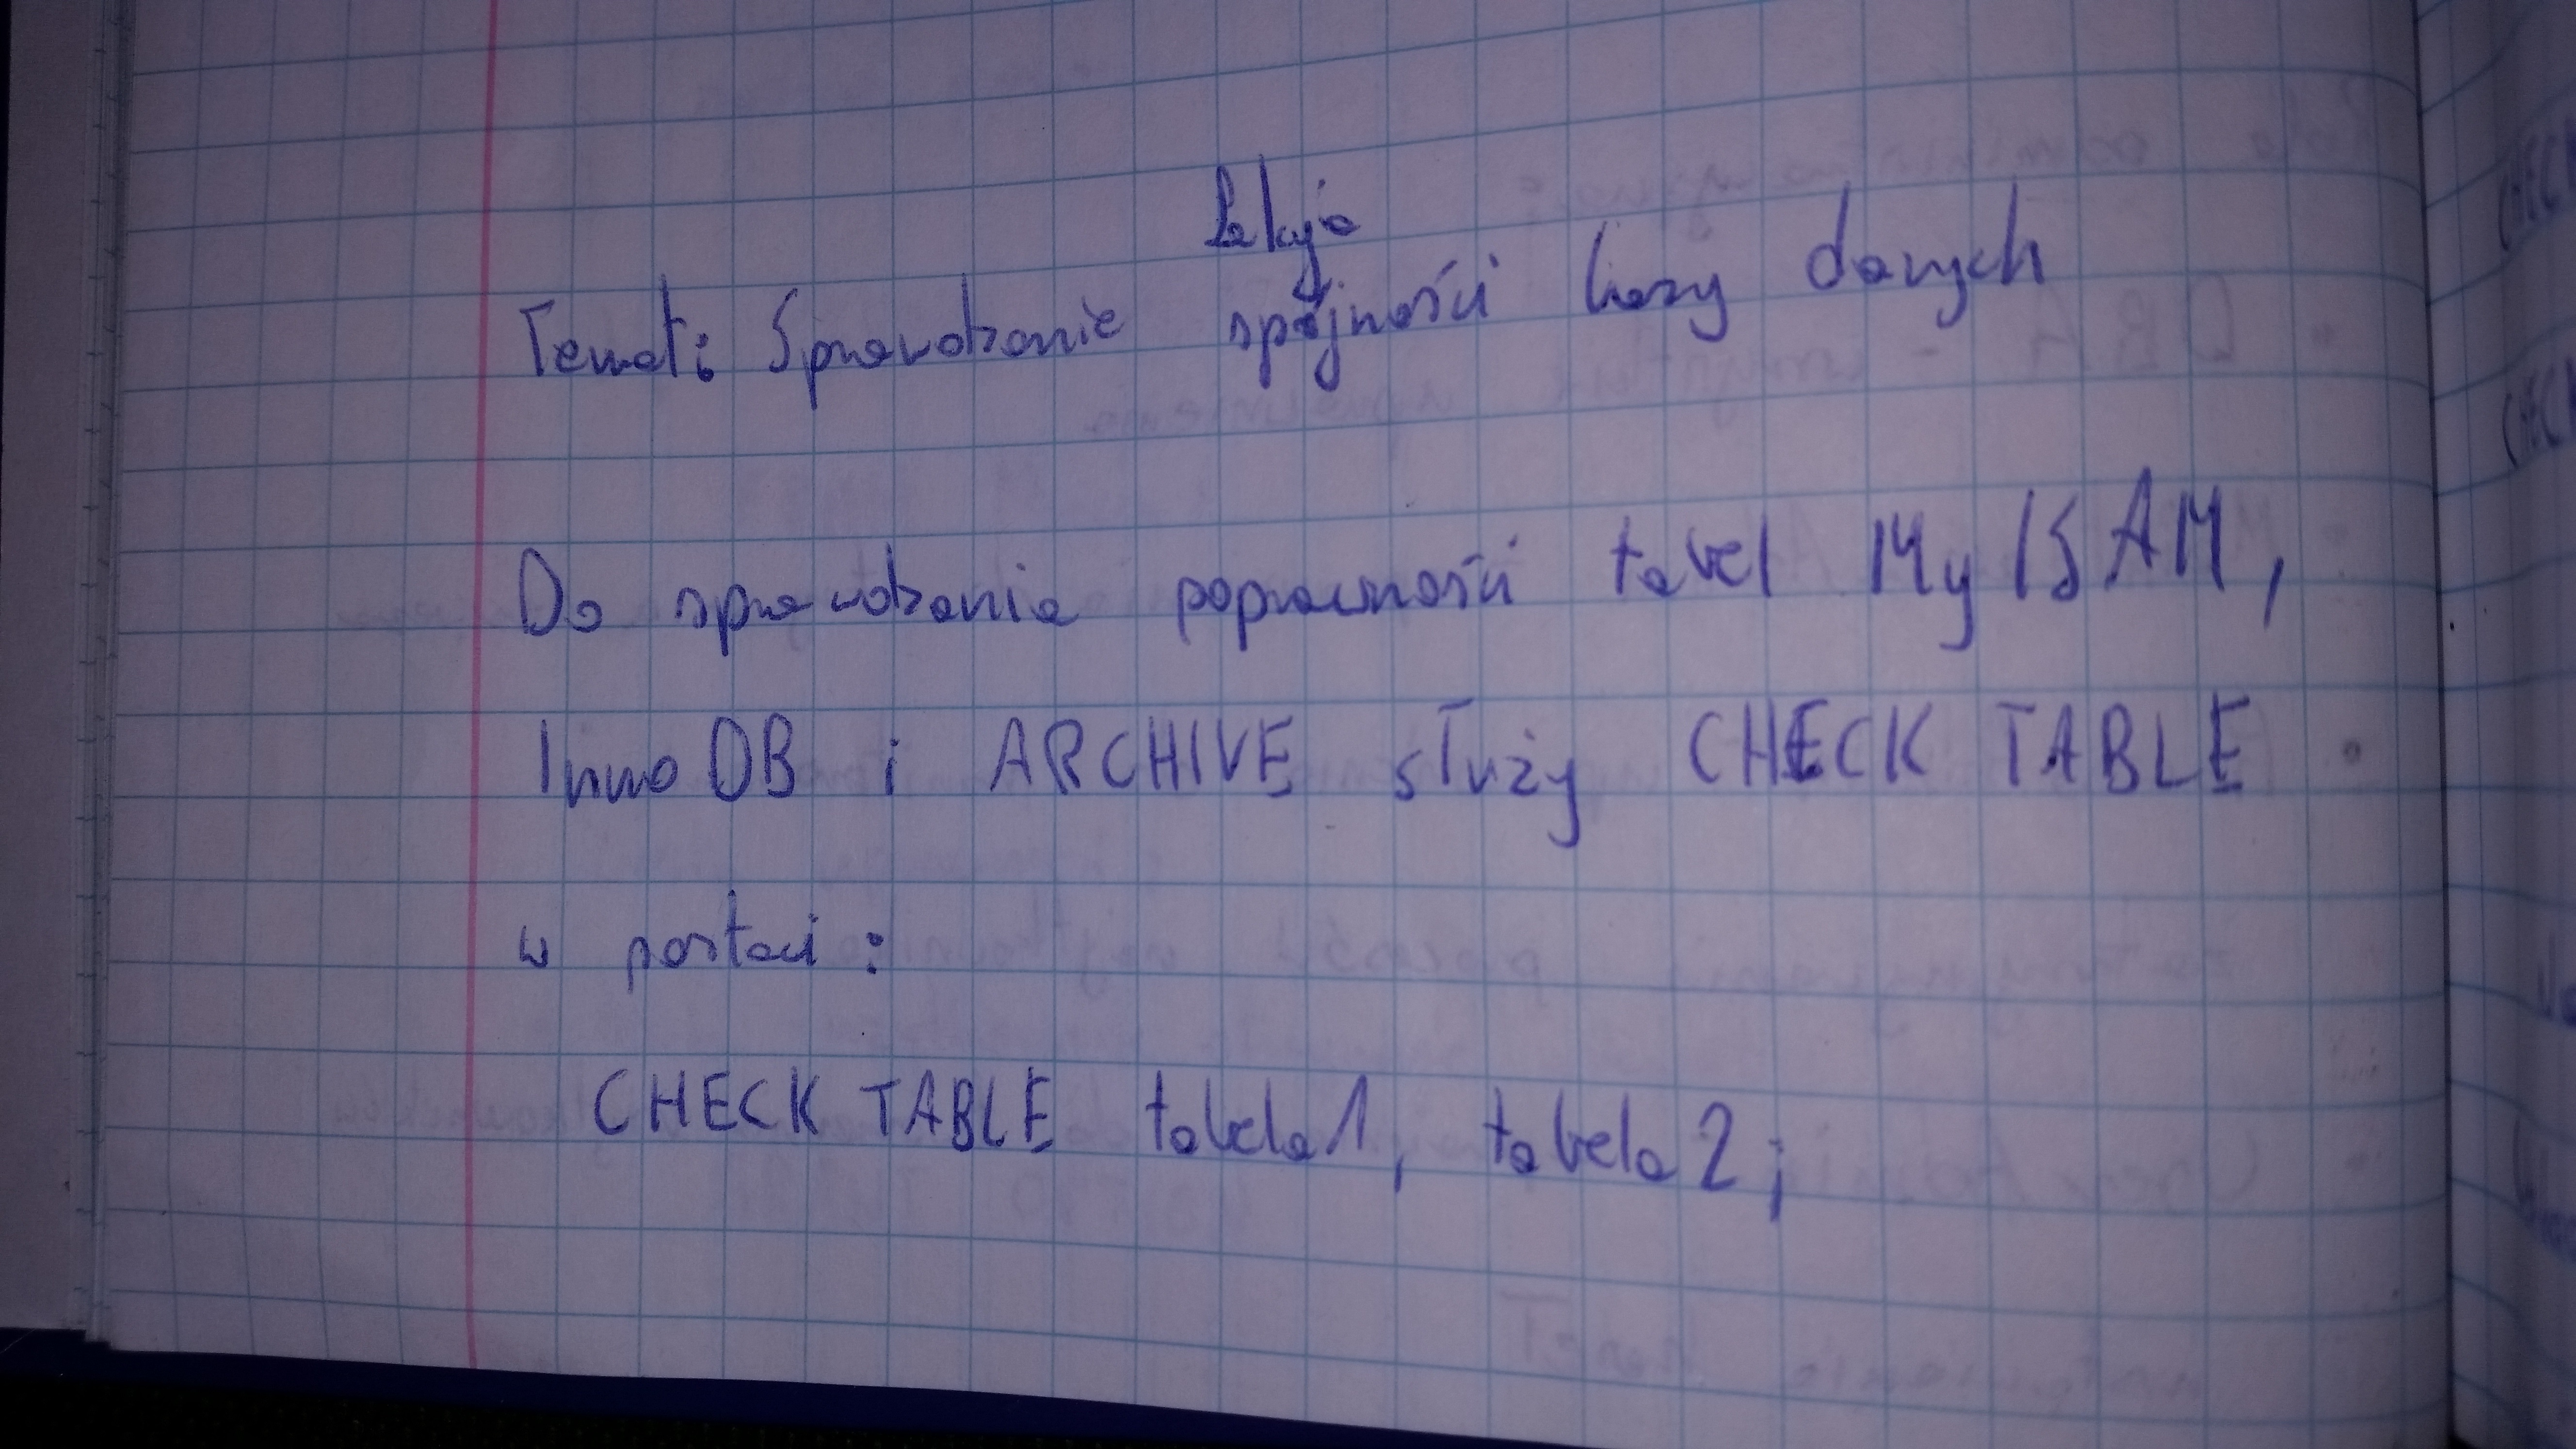 Lekcja
Temat: Sprawdzanie spójności bazy danych
Do sprawdzania poprawności tabel MyISAM,
InnoDB i ARCHIVE służy CHECK TABLE
w postaci:
CHECK TABLE tabela1, tabela2;